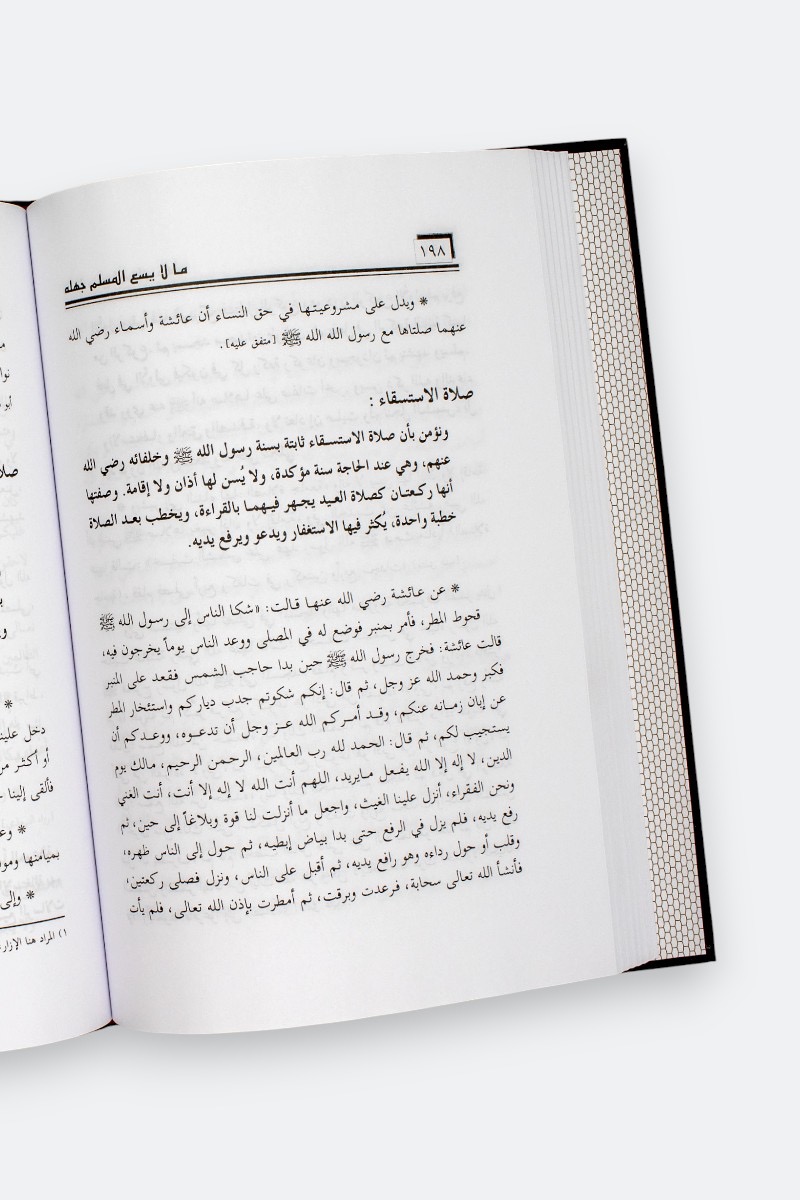 ١٩٨
ما لا يسع المسلم جهله
* ويدل على مشروعيتها في حق النساء أن عائشة وأسماء رضي الله
عنهما صلتاها مع رسول الله الله ﷺ [متفق عليه].
صلاة الاستسقاء :
ونؤمن بأن صلاة الاستسقاء ثابتة بسنة رسول الله ﷺ وخلفائه رضي الله
عنهم، وهي عند الحاجة سنة مؤكدة، ولا يُسن لها أذان ولا إقامة. وصفتها
أنها ركعتان كصلاة العيد يجهر فيهما بالقراءة، ويخطب بعد الصلاة
خطبة واحدة، يُكثر فيها الاستغفار ويدعو ويرفع يديه.
* عن عائشة رضي الله عنها قالت: «شكا الناس إلى رسول الله ﷺ
قحوط المطر، فأمر بمنبر فوضع له في المصلى ووعد الناس يوماً يخرجون فيه،
قالت عائشة: فخرج رسول الله ﷺ حين بدا حاجب الشمس فقعد على المنبر
فكبر وحمد الله عز وجل، ثم قال: إنكم شكوتم جدب دياركم واستئخار المطر
عن إبان زمانه عنكم، وقد أمركم الله عز وجل أن تدعوه، ووعدكم أن
يستجيب لكم، ثم قال: الحمد لله رب العالمين، الرحمن الرحيم، مالك يوم
الدين، لا إله إلا الله يفعل مايريد، اللهم أنت الله لا إله إلا أنت، أنت الغني
ونحن الفقراء، أنزل علينا الغيث، واجعل ما أنزلت لنا قوة وبلاغاً إلى حين، ثم
رفع يديه، فلم يزل في الرفع حتى بدا بياض إبطيه، ثم حول إلى الناس ظهره،
وقلب أو حول رداءه وهو رافع يديه، ثم أقبل على الناس، ونزل فصلى ركعتين،
فأنشأ الله تعالى سحابة، فرعدت وبرقت، ثم أمطرت بإذن الله تعالى، فلم يأت
*
دخل علينا
أو أكثر من
فألقى إلينا
* وعن
بميامنها
* وإلى
١) المراد هنا الإزار